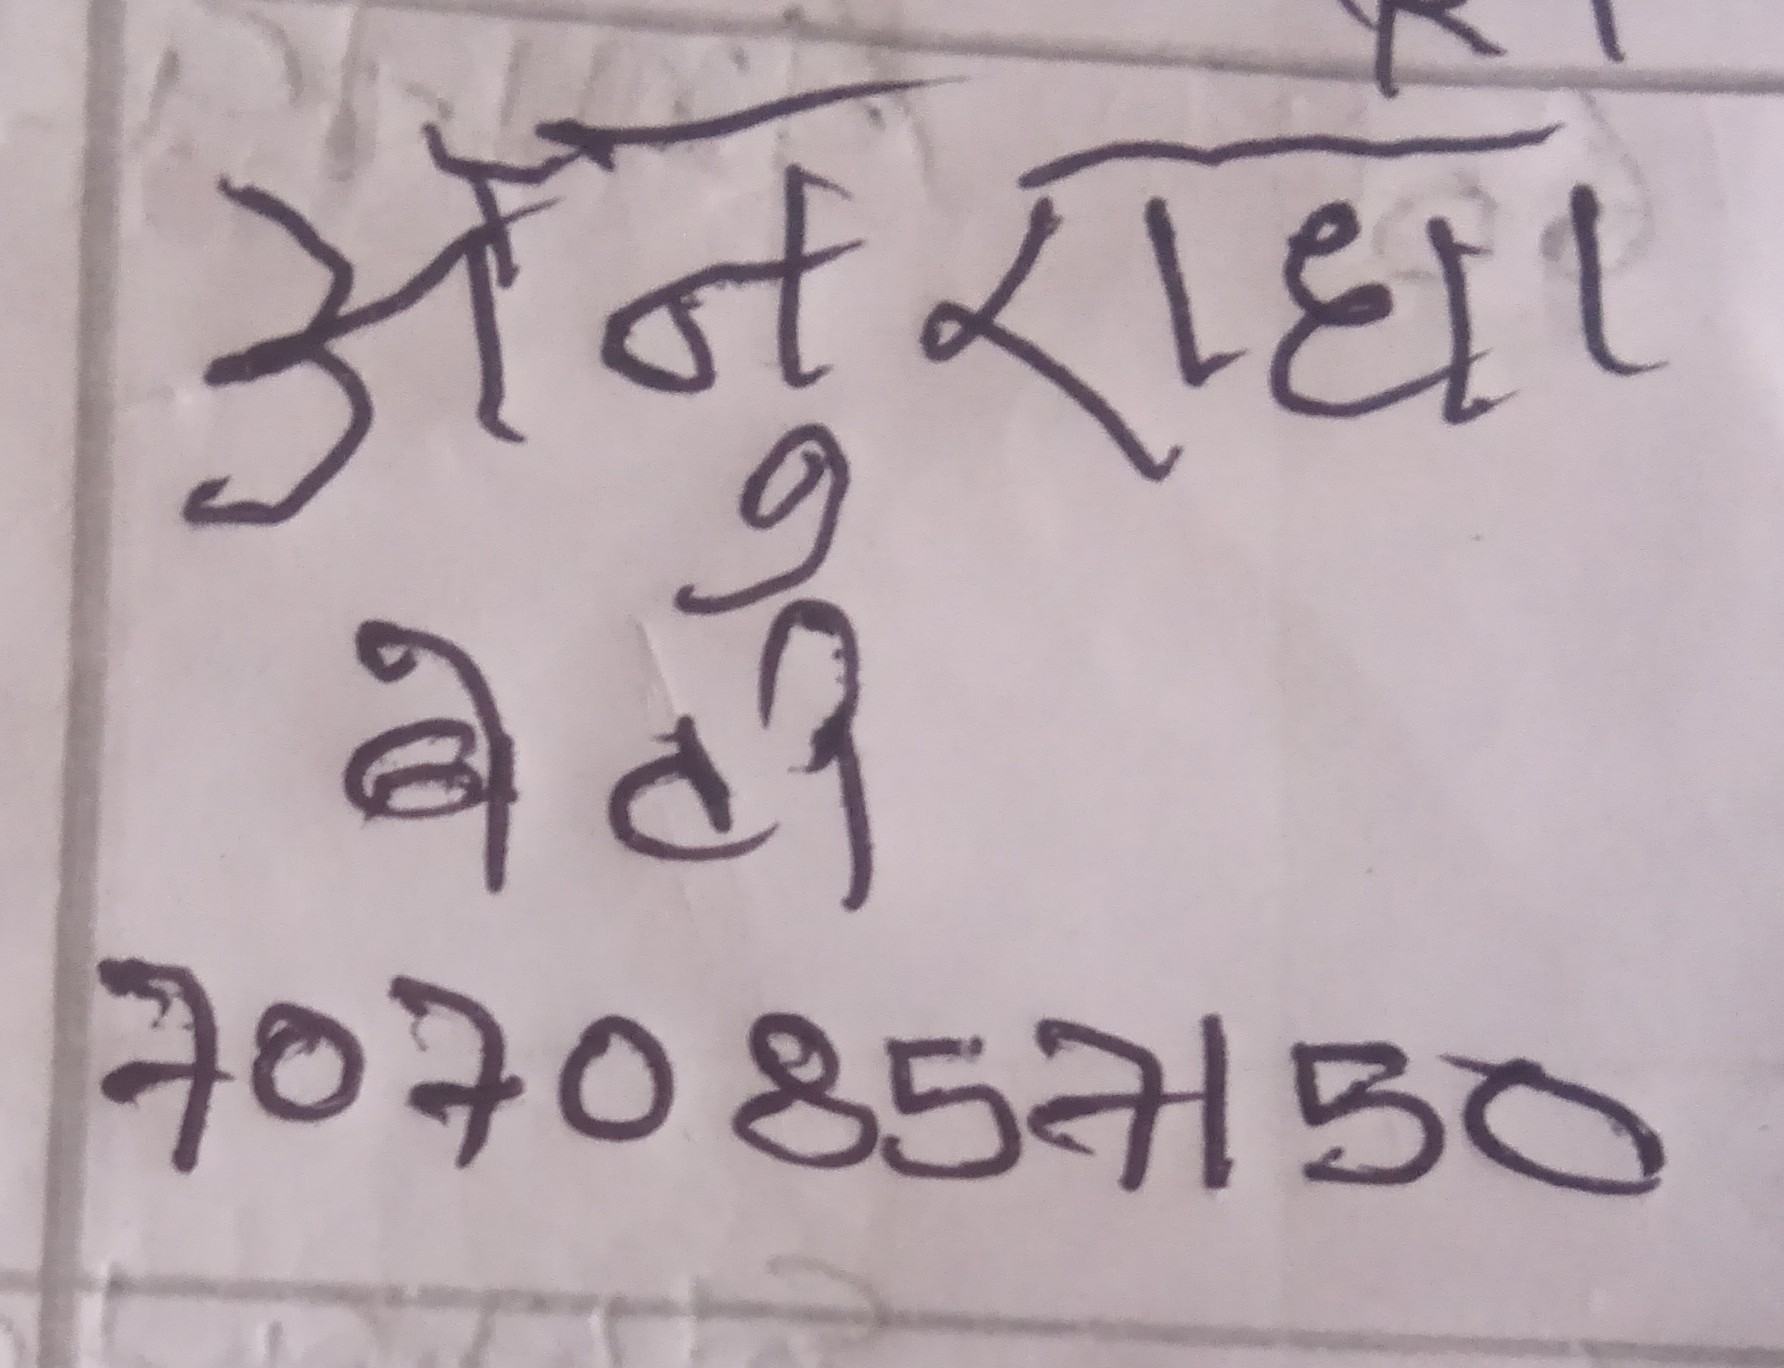 अनुराधा
बेटी
7070857150